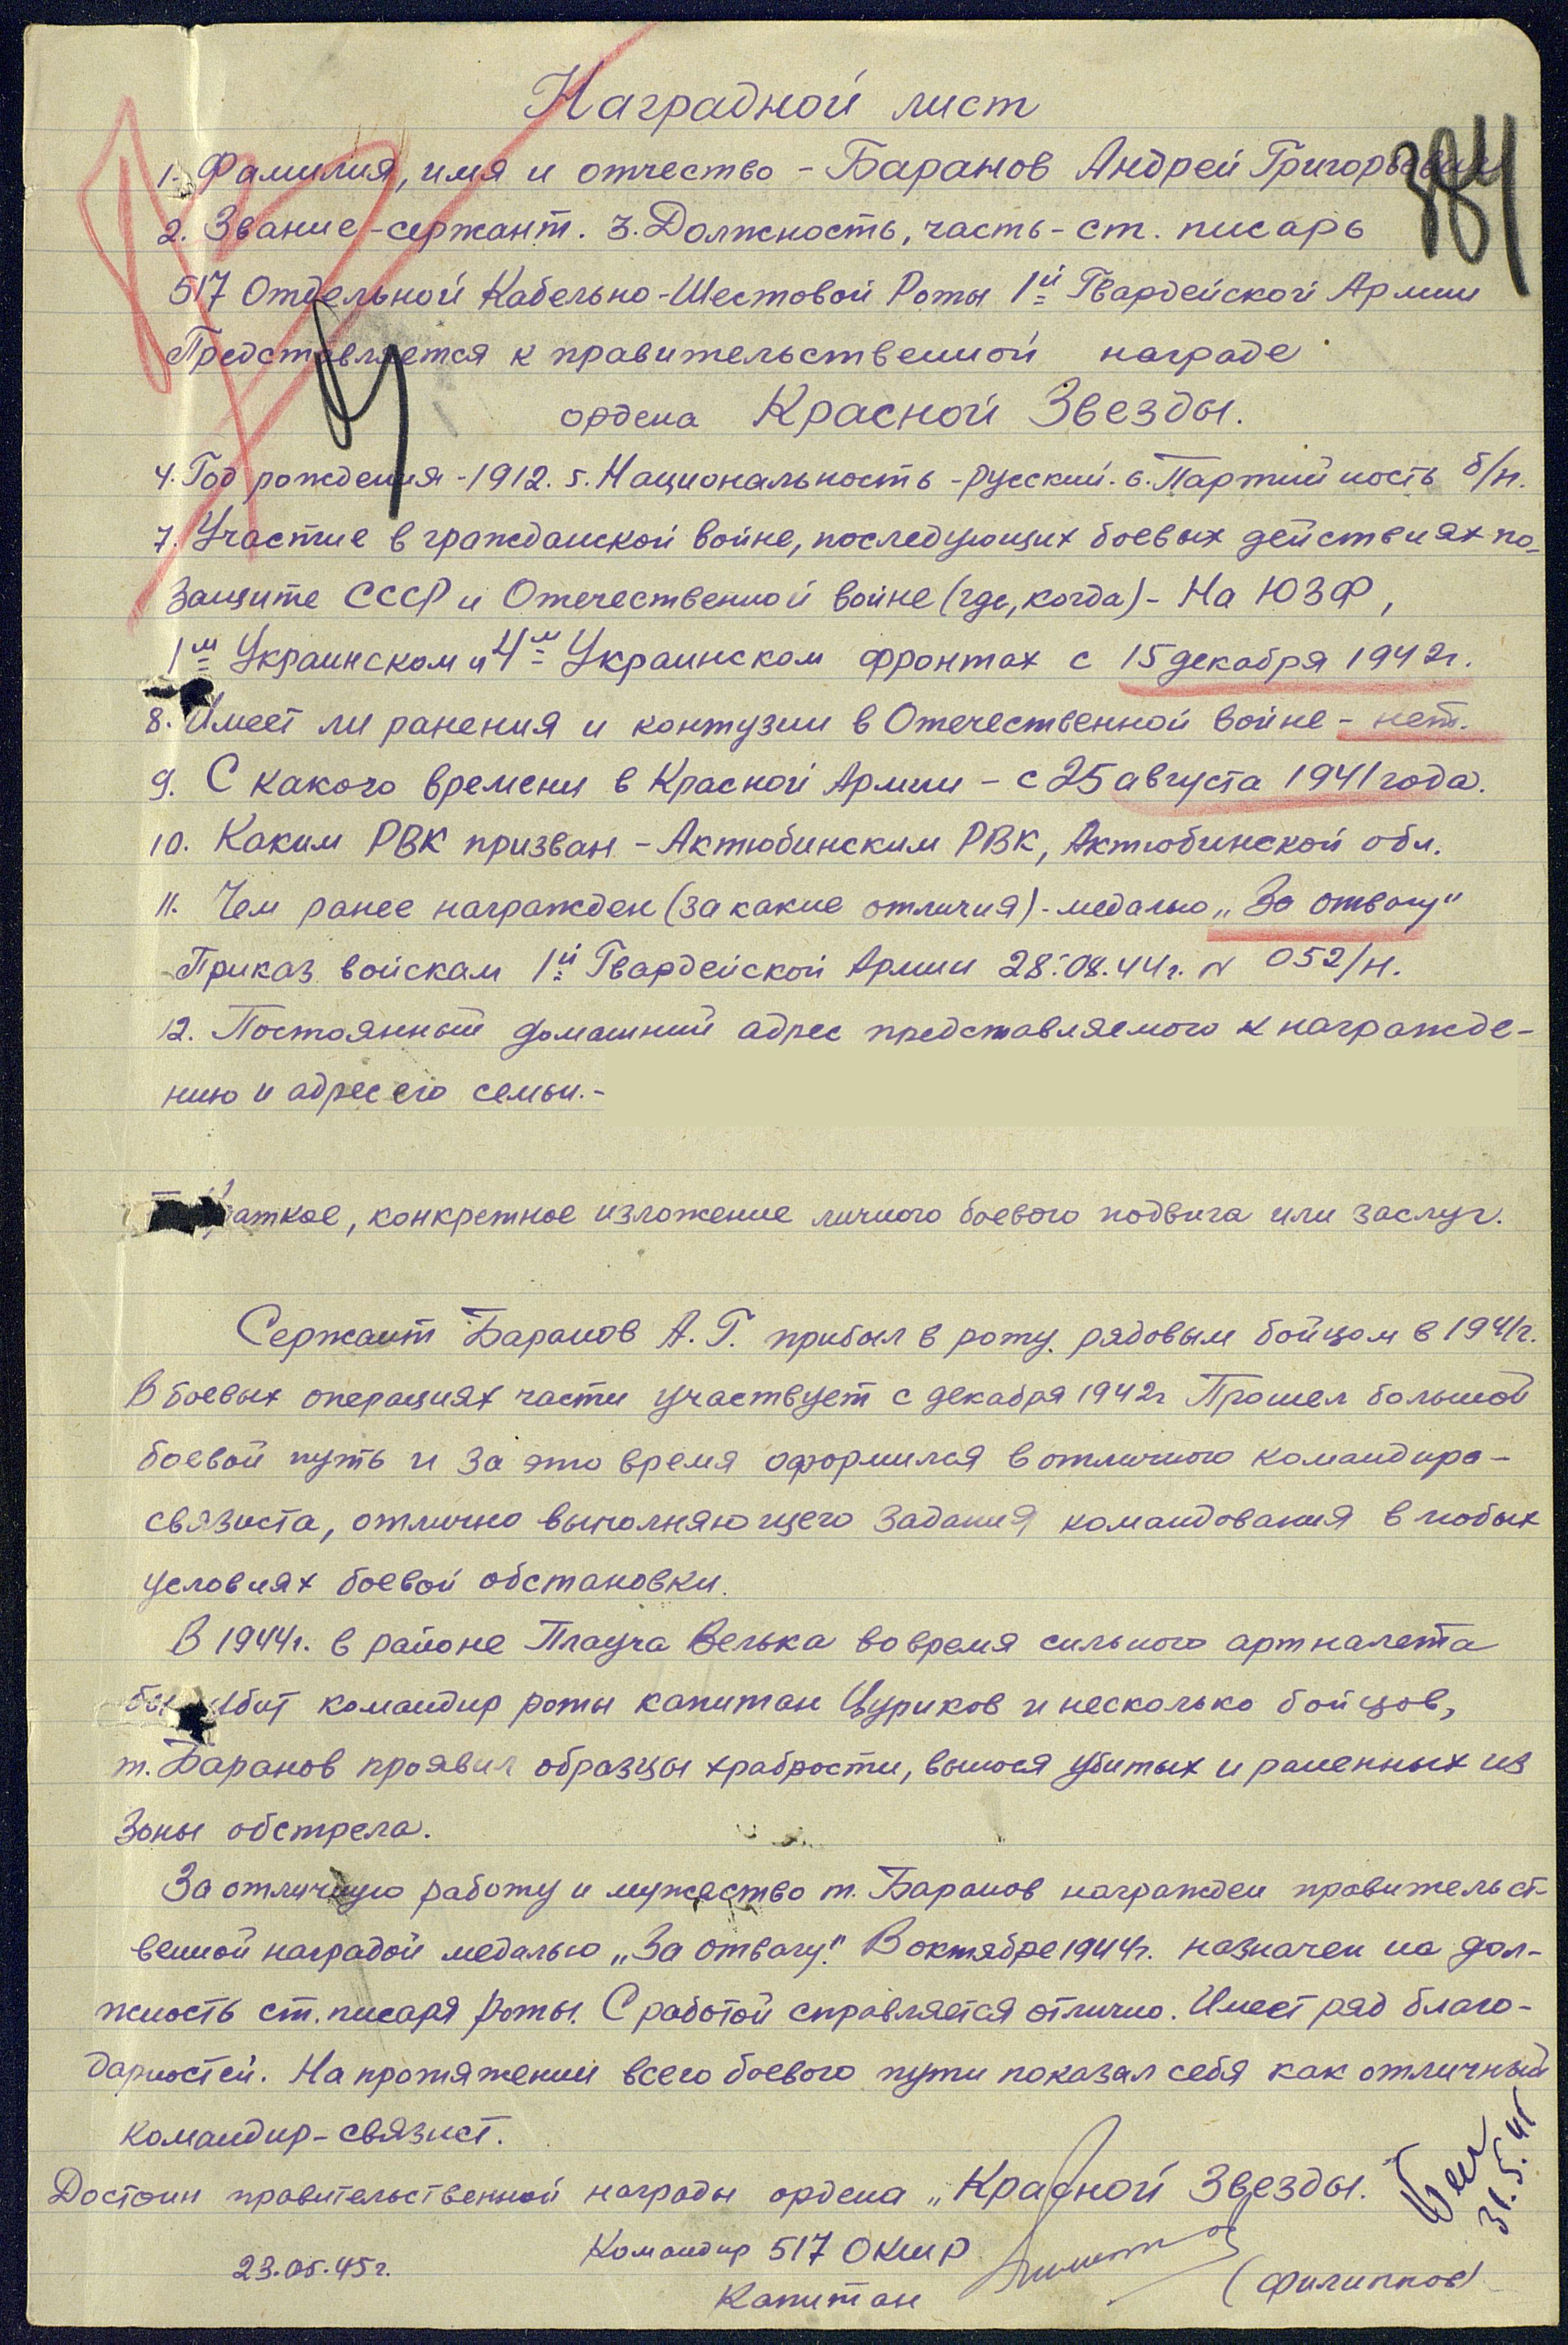 Наградной лист
384
1. Фамилия, имя и отчество - Баранов Андрей Григорьевич
2. Звание - сержант. 3. Должность, часть - ст. писарь
517 Отдельной Кабельно-Шестовой Роты 1й Гвардейской Армии
Представляется к правительственной награде
ордена Красной Звезды.
4. Год рождения - 1912. 5. Национальность - русский. 6. Партийность б/п.
7. Участие в гражданской войне, последующих боевых действиях по
защите СССР и Отечественной войне (где, когда) - На ЮЗФ,
1м Украинском и 4м Украинском фронтах с 15 декабря 1942г.
8. Имеет ли ранения и контузии в Отечественной войне - нет.
9. С какого времени в Красной Армии - с 25 августа 1941 года.
10. Каким РВК призван - Актюбинским РВК, Актюбинской обл.
11. Чем ранее награжден (за какие отличия) - медалью „За отвагу"
Приказ войскам 1й Гвардейской Армии 28.08.44г. N 052/н.
12. Постоянный домашний адрес представляемого к награжде-
нию и адрес его семьи. -
раткое, конкретное изложение личного боевого подвига или заслуг.
Сержант Баранов А. Г. прибыл в роту рядовым бойцом в 1941г.
В боевых операциях части участвует с декабря 1942г Прошел большой
боевой путь и за это время оформился в отличного командира-
связиста, отлично выполняющего задания командования в любых
условиях боевой обстановки.
В 1944г. в районе Плауча Велька во время сильного артналета
был убит командир роты капитан Цуриков и несколько бойцов,
т. Баранов проявил образцы храбрости, вынося убитых и раненных из
зоны обстрела.
За отличную работу и мужество т. Баранов награжден правительст-
венной наградой медалью „За отвагу". В октябре 1944г. назначен на дол-
жность ст. писаря роты. С работой справляется отлично. Имеет ряд благо-
дарностей. На протяжении всего боевого пути показал себя как отличный
командир-связист.
Достоин правительственной награды ордена „Красной Звезды.
31.5.45
Командир 517 ОКШР
23.05.45г.
Капитан (Филиппов)